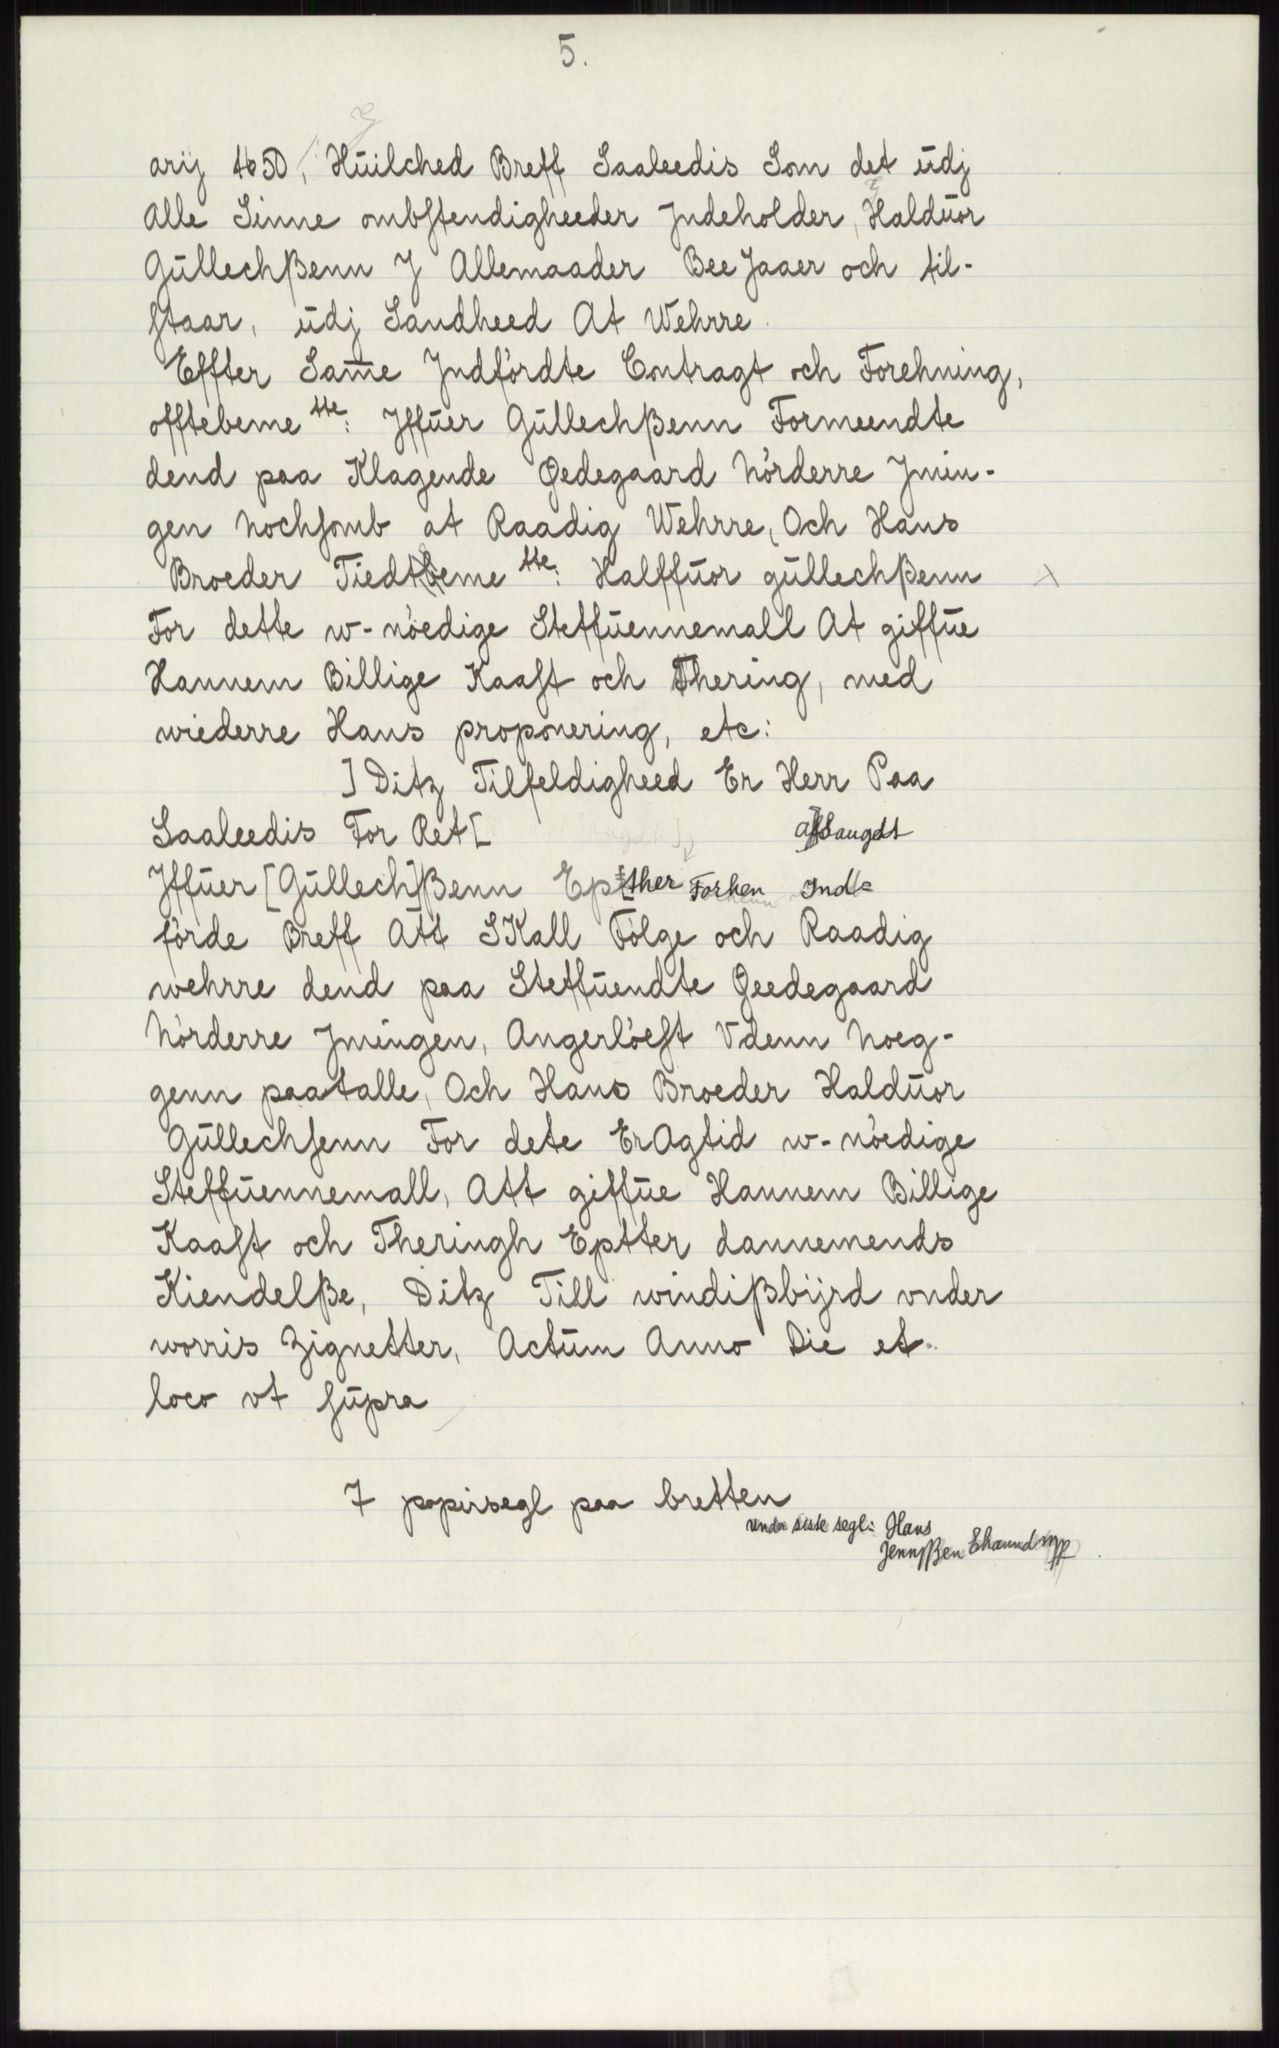 5.
arij 1650, Huilched Breff Saaleedis Som det udj
Alle Sinne ombstendigheeder Jndeholder, Halduor
Gullechßenn J Allemaader BeeJaaer och til-
staar, udj Sandheed At Wehrre
Effter Sam̅e Jndførdte Contragt och Forehning,
offtebeme tte: Jffuer Gullechßenn Formeendte
dend paa Klagende Ødegaard Nørderre Jmin-
gen Nochsomb at Raadig Wehrre, Och Hans
Broeder Tiedtbeme tte: Halffuor gullechßenn
For dette w-nøedige Steffuennemall At giffue
Hannem Billige Kaast och Thering, med
wiederre Hans proponering, etc:
] Ditz Tilfeldigheed Er Herr Paa
Saaleedis For Ret [ affsaugdt
Jffuer [Gullech]ßenn Epther Forhen Ind=
førde Breff Att SKall Følge och Raadig
wehrre dend paa Steffuendte Øeedegaard
Nørderre Jmingen, Angerløest Vdenn Noeg-
genn paatalle, Och Hans Broeder Halduor
Gullechsenn For dete ErAgtid w-nøedige
Steffuennemall, Att giffue Hannem Billige
Kaast och Theringh Eptter dannemends
Kiendelße, Ditz Till windißbijrd vnder
worris Zignetter, Actum Anno Die et
loco vt supra
7 papirsegl paa bretten
under siste segl: Hans
Jennßen